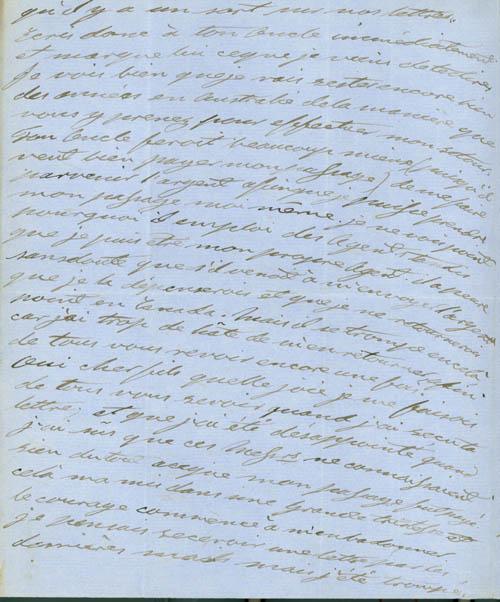 qu'il y a un sort sur nos lettres.
Ecris donc à ton Oncle immédiatement
et marque lui ce que je viens de te dire
Je vois bien que je vais rester encore bien
des années en Australie de la manière que
vous y prenez pour effectuer mon retour.
Ton Oncle feroit beaucoup mieux (puisqu'il
veut bien payer mon passage) de me faire
parvenir l'argent afin que je puisse prendre
mon passage moi même, je ne vois point
pourquoi d'emploi des Agents tandis
que je puis être mon propre Agent, il a peur
sans doute que s'il venoit à m'envoyer l'argent
que je la dépenserois et que je ne retournerois
point en Canada. Mais il se trompe encore
car j'ai trop de hâte de m'en retourner afin
de tous vous revoir encore une fois
Oui cher fils quelle joie je me faisois
de tous vous revoir quand j'ai reçu ta
lettre, et que j'ai été désappointé quand
j'ai vûs que ces Messrs ne connaissaient
rien du tout au sujet mon passage
celà m'a mis dans une grande tristesse et
le courage commence à m'abandonner
je pensais recevoir une lettre par les
dernières mails mais j'ai été trompé,